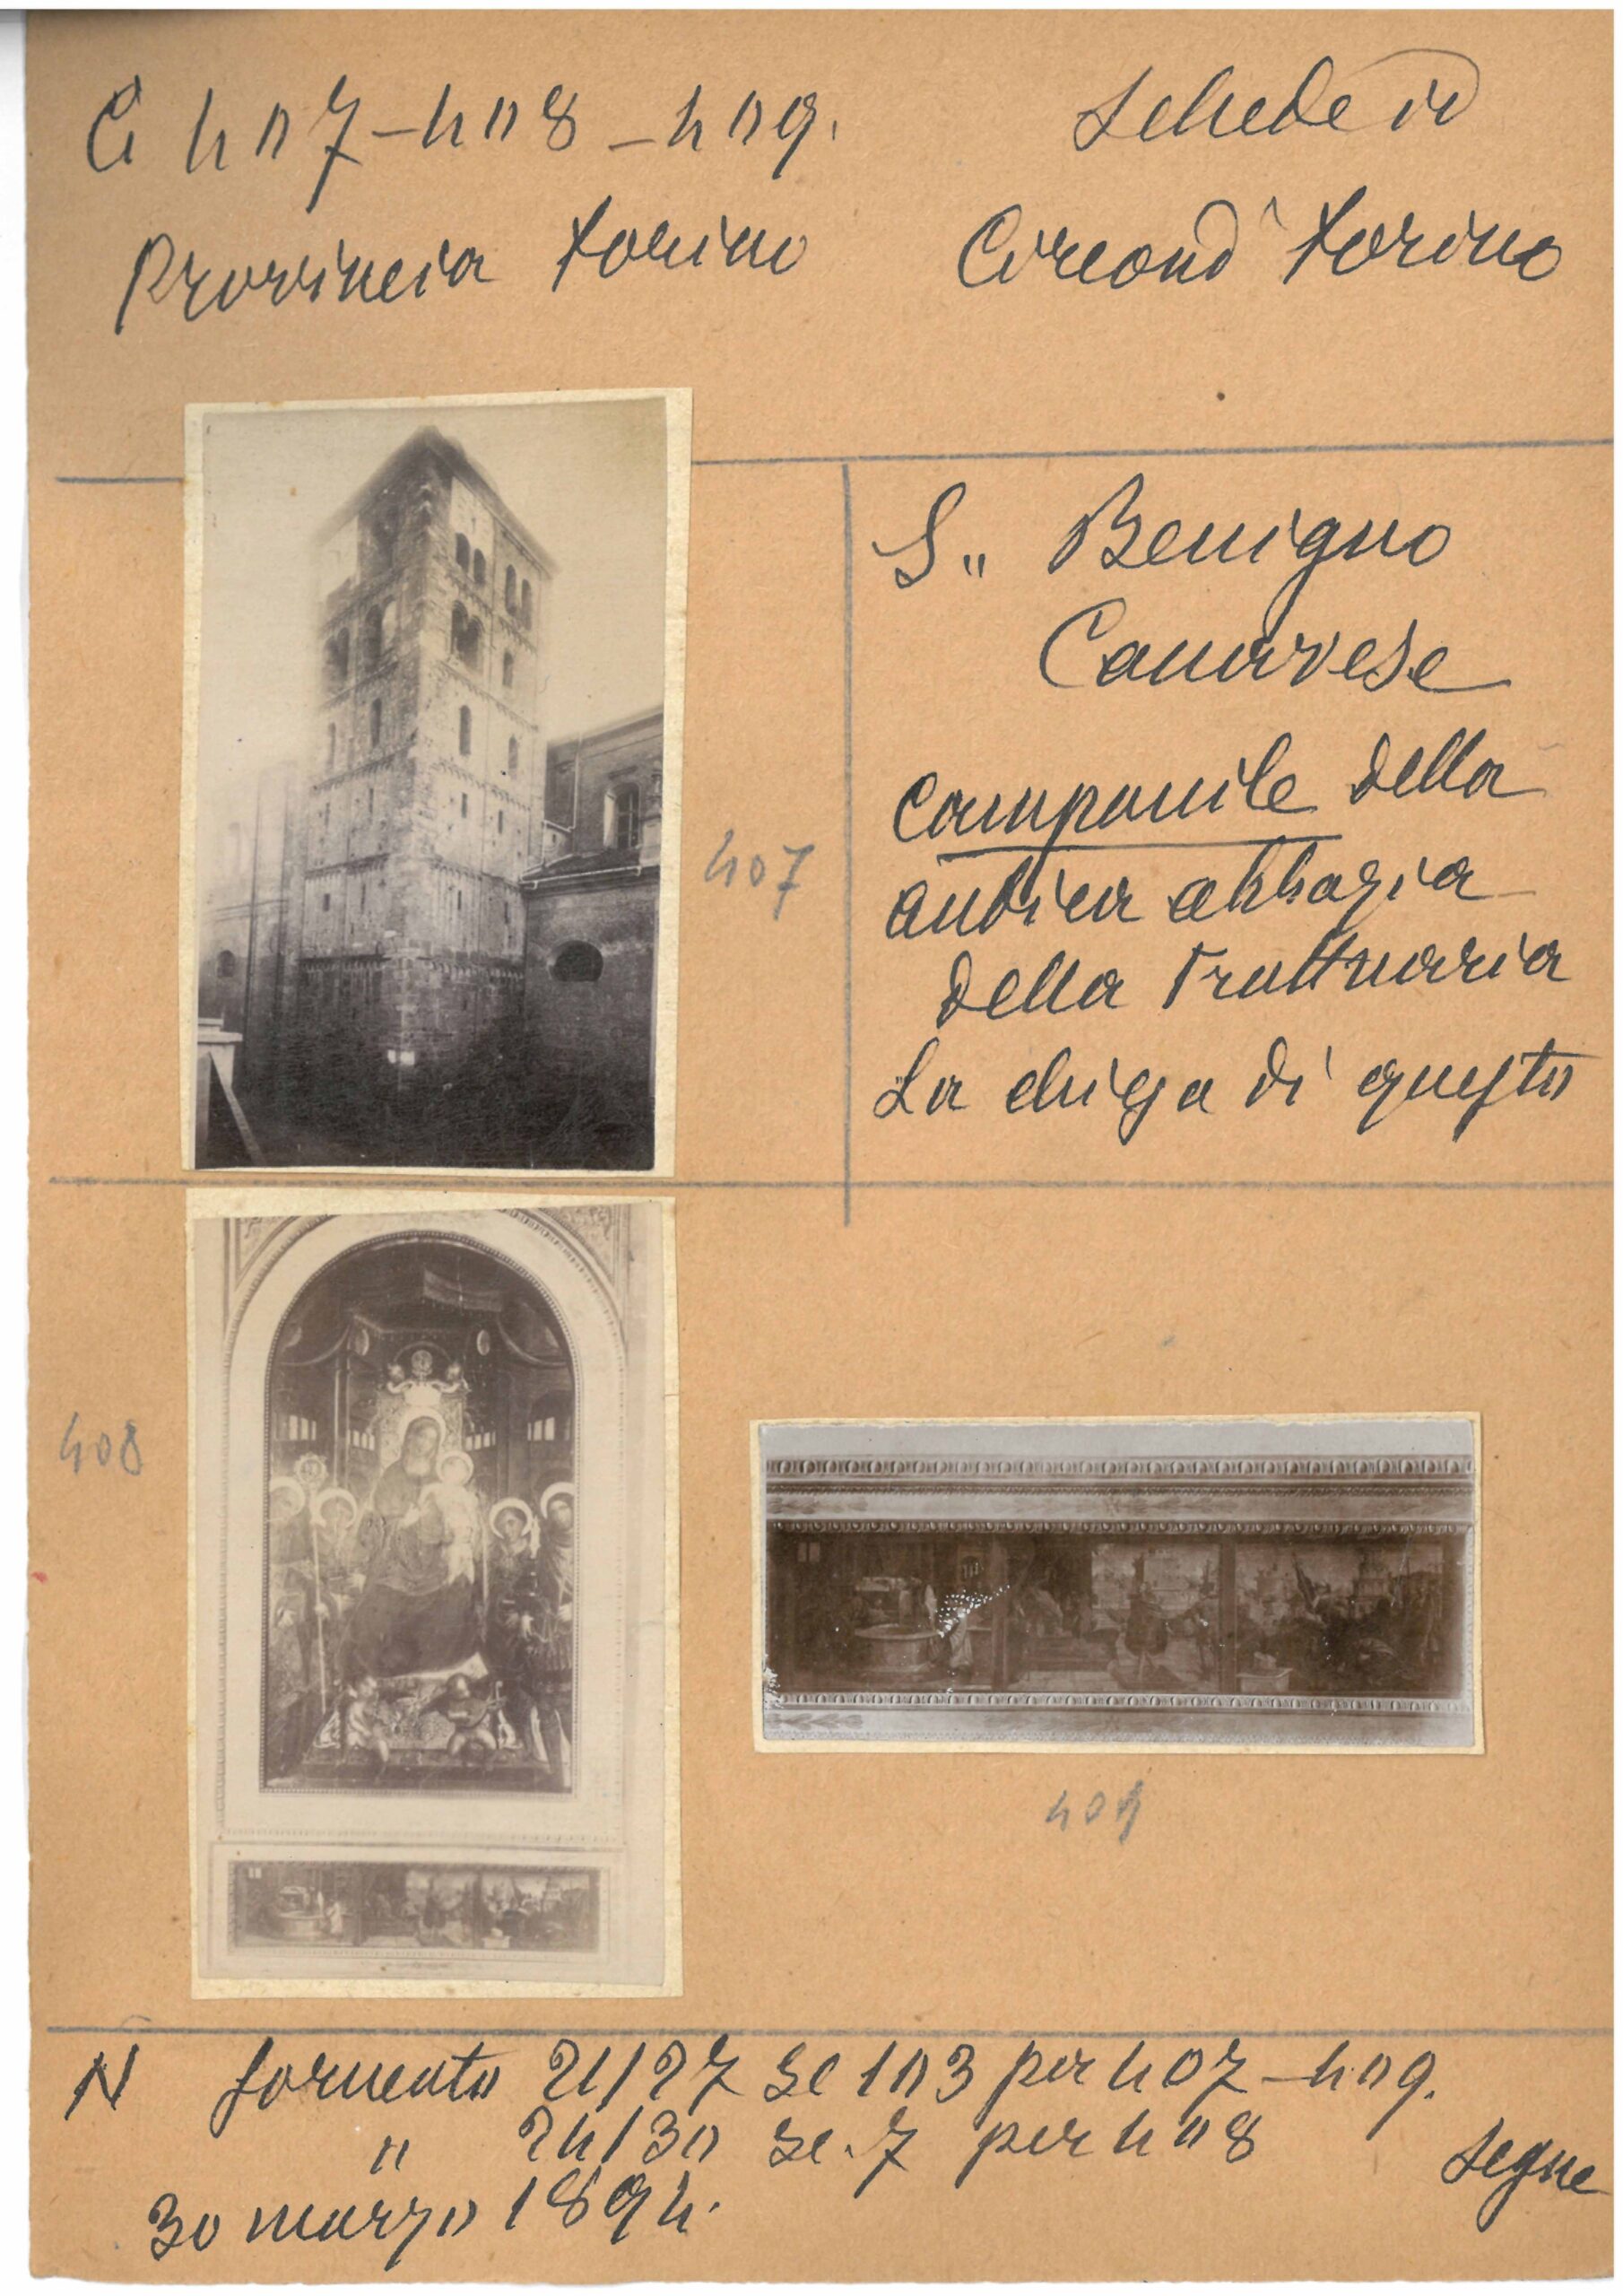 Ci 407-408-409.
Schede
Provincia Torino
Circond° Torino
S" Benigno
Canavese
Campanile della
antica abbazia
della Fruttuaria
La chiesa di questa
407
408
409
N formento 21/27 Sc 103 per 407-409.
" 24/30 Sc. 7 per 408
segue
30 marzo 1894.